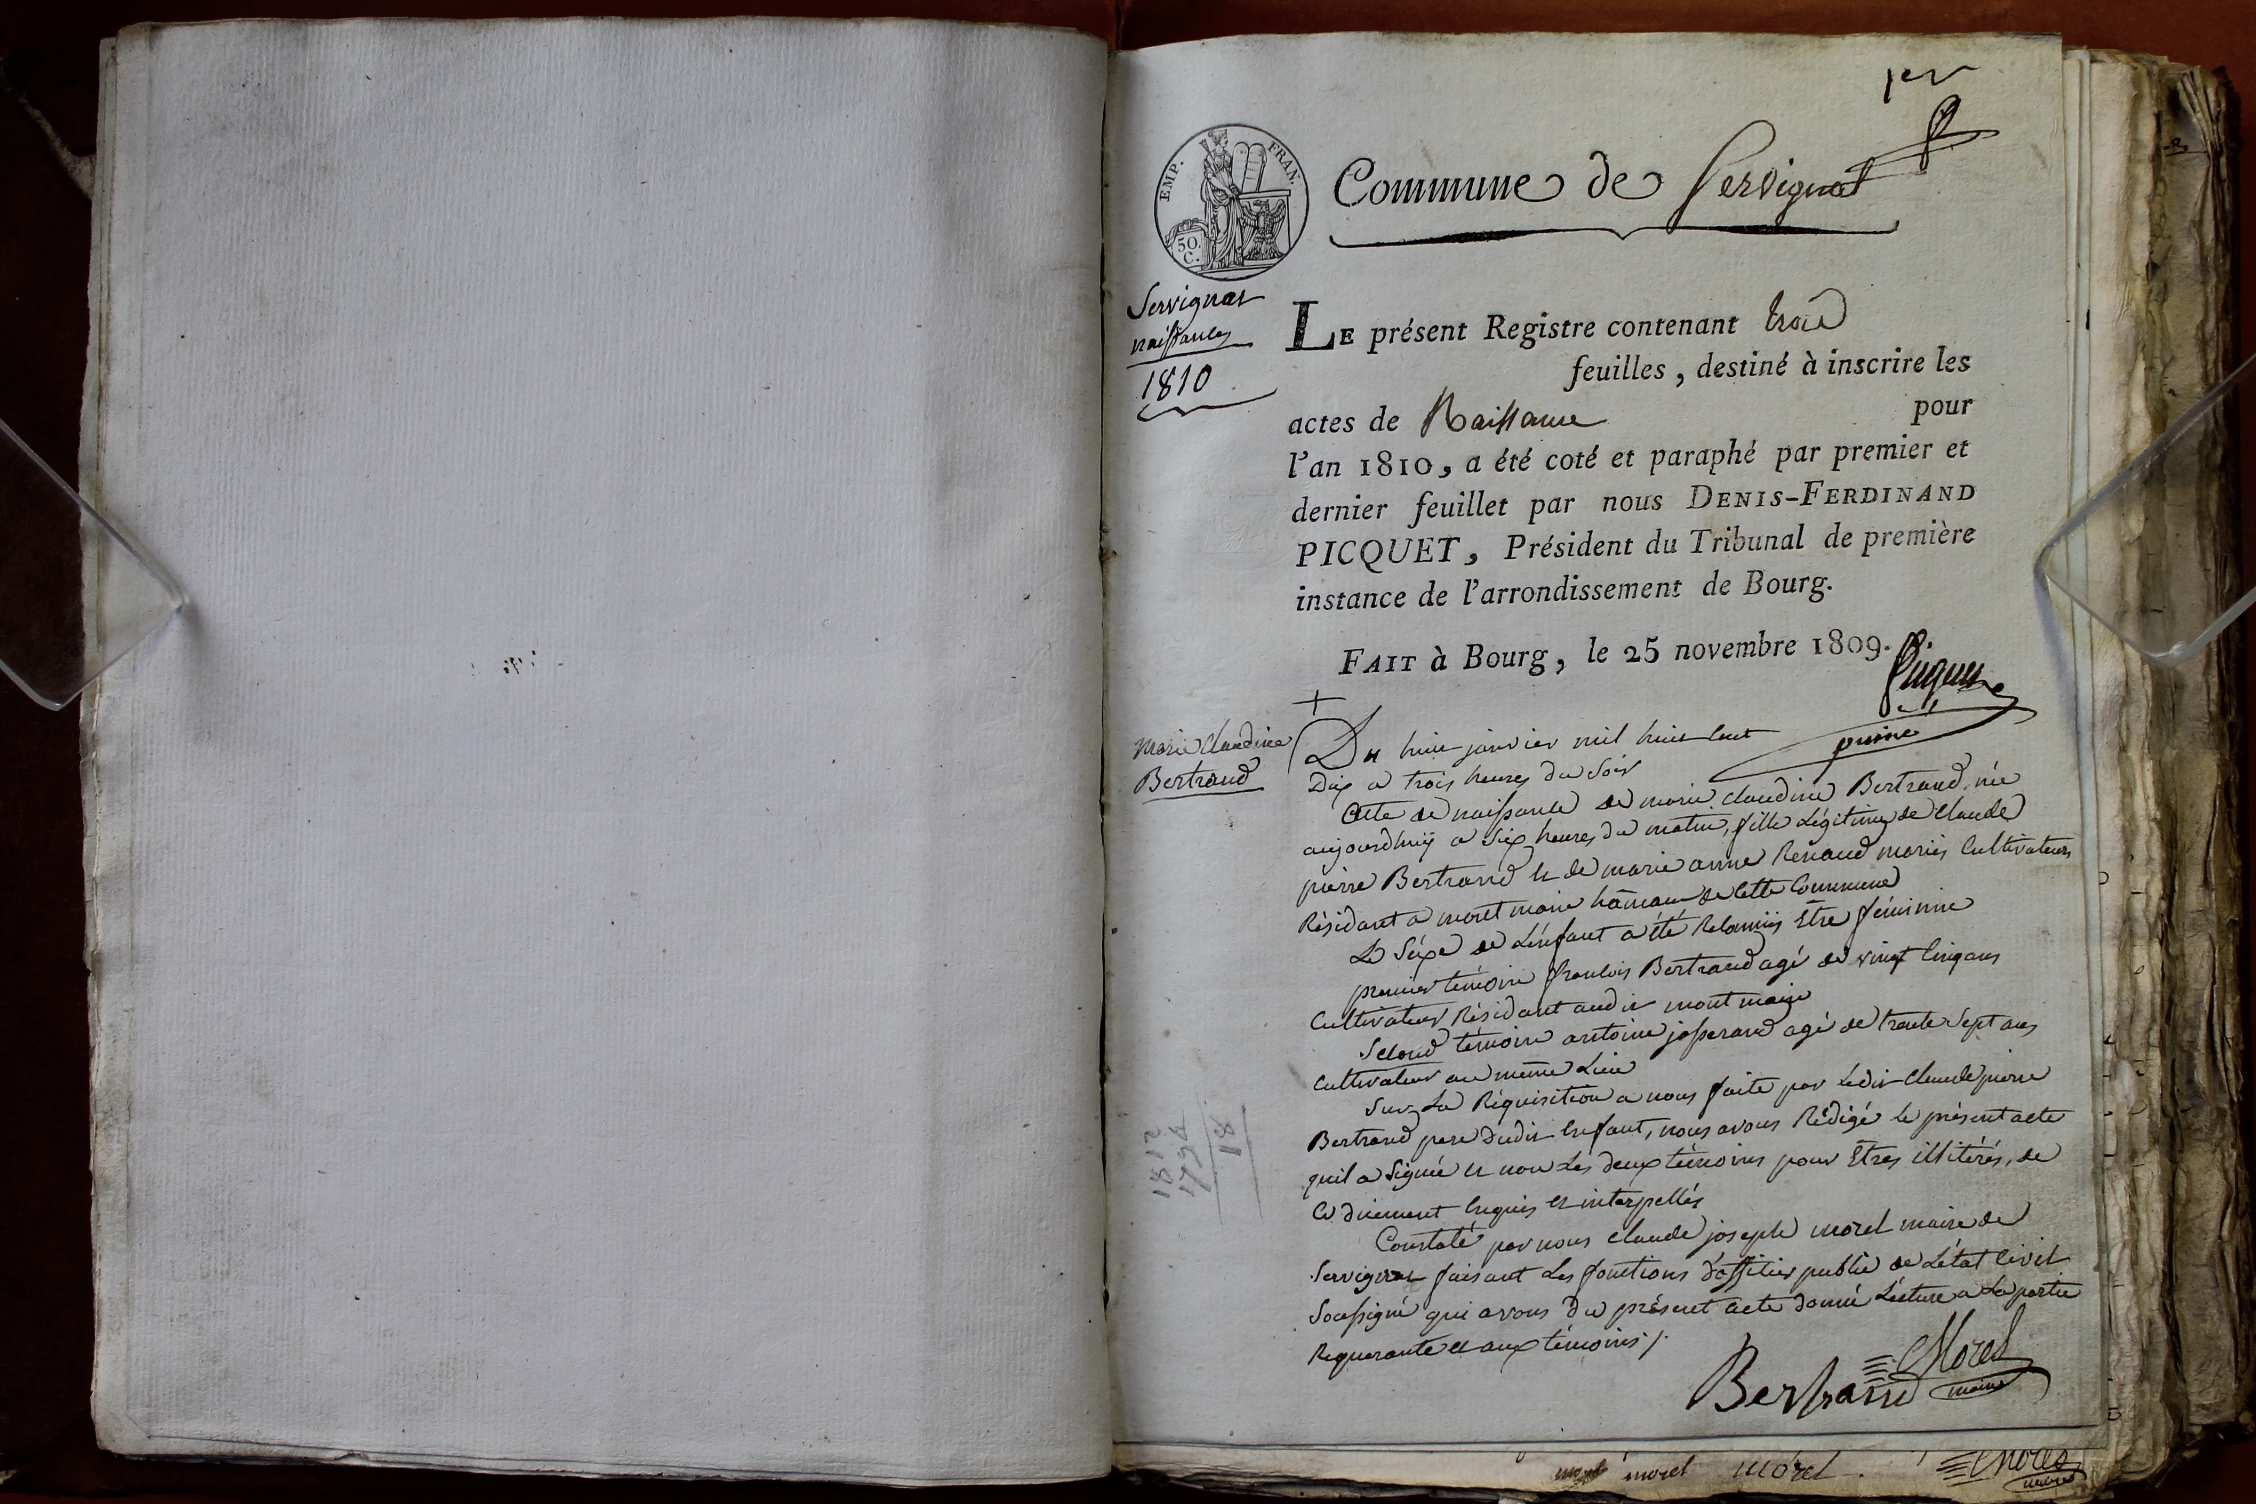 1er
EMP. FRAN.
50. C.
Commune de Servignat
Servignat
naissances
1810
LE présent Registre contenant trois
feuilles, destiné à inscrire les
actes de Naissance pour
l'an 1810, a été coté et paraphé par premier et
dernier feuillet par nous DENIS-FERDINAND
PICQUET, Président du Tribunal de première
instance de l'arrondissement de Bourg.
FAIT à Bourg, le 25 novembre 1809.
Picquet
Marie Claudine
Bertrand
Du huit janvier mil huit cent
Dix a trois heures du soir
Acte de naissance de marie Claudine Bertrand, née
aujourdhuÿ a six heures du matin, fille Légitime de Claude
pierre Bertrand et de marie anne Renaud mariés Cultivateurs
Résidant a mont maire hâmeau de Cette Commune
Le Séxe de L'énfant a été Reconnüs Etre féminine
premier témoin francois Bertrand agé de vingt Cinq ans
Cultivateur Résidant audit mont maire
Second témoin antoine josserand agé de trente Sept ans
Cultivateur au même Lieu
Sur La Réquisition a nous faite par Ledit Claude pierre
Bertrand pere dudit Enfant, nous avons Rédigé le présent acte
quil a Signé et non Les deux témoins pour Etres illitérés, de
Ce duement Enquis et interpellés
Constaté par nous Claude joseph morel maire de
Servignat faisant Les fonctions d'officier public de L'état Civil
Soussigné qui avons du présent acte donné Lécture a La partie
Requerante et aux témoins ./.
Morel
maire
Bertrand
1812
1794
18
morel morel morel
Morel
maire